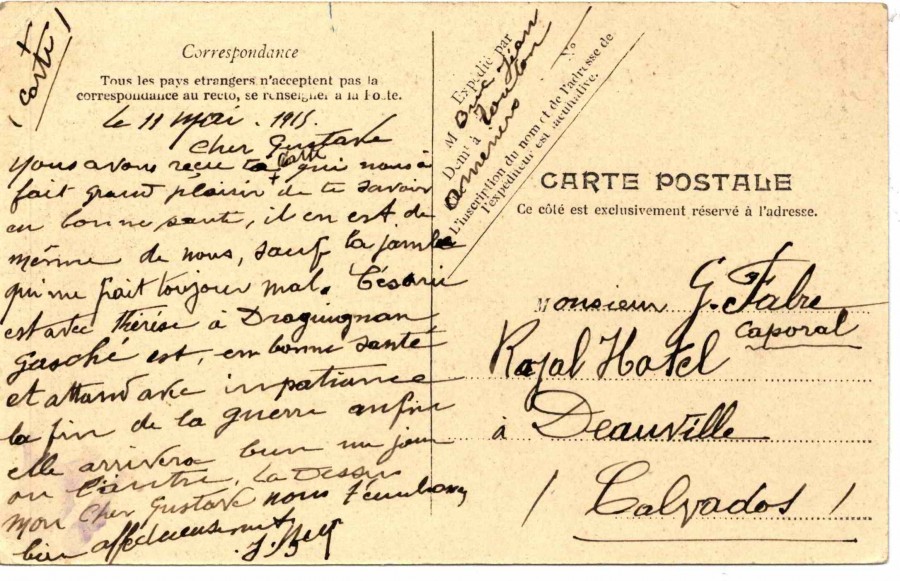 + Carte
Correspondance
Tous les pays etrangers n'acceptent pas la
correspondance au recto, se renseigner à la Poste.
le 11 Mai . 1915.
Cher Gustave
Nous avons reçu ta + Carte qui nous a
fait grand plaisir de te savoir
en bonne sante, il en est de
même de nous, sauf la jambe
qui me fait toujour mal. Césarie
est avec Thérèse à Draguignan
Gasché est, en bonne santé
et attand avec impatiance
la fin de la guerre anfin
elle arrivera bien un jour
ou l'autre, La Dessus
mon Cher Gustave nous t'embrassons
bien affectueusement
Expédié par
M Jean
Demt à Toulon
Nº
L'inscription du nom et de l'adresse de
l'expéditeur est facultative.
CARTE POSTALE
Ce côté est exclusivement réservé à l'adresse.
Monsieur G. Fabre
Caporal
Royal Hotel
à Deauville
(Calvados)